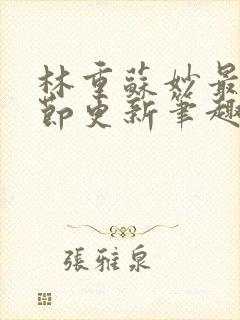 林重蘇妙最
節更新筆趣
張雅泉